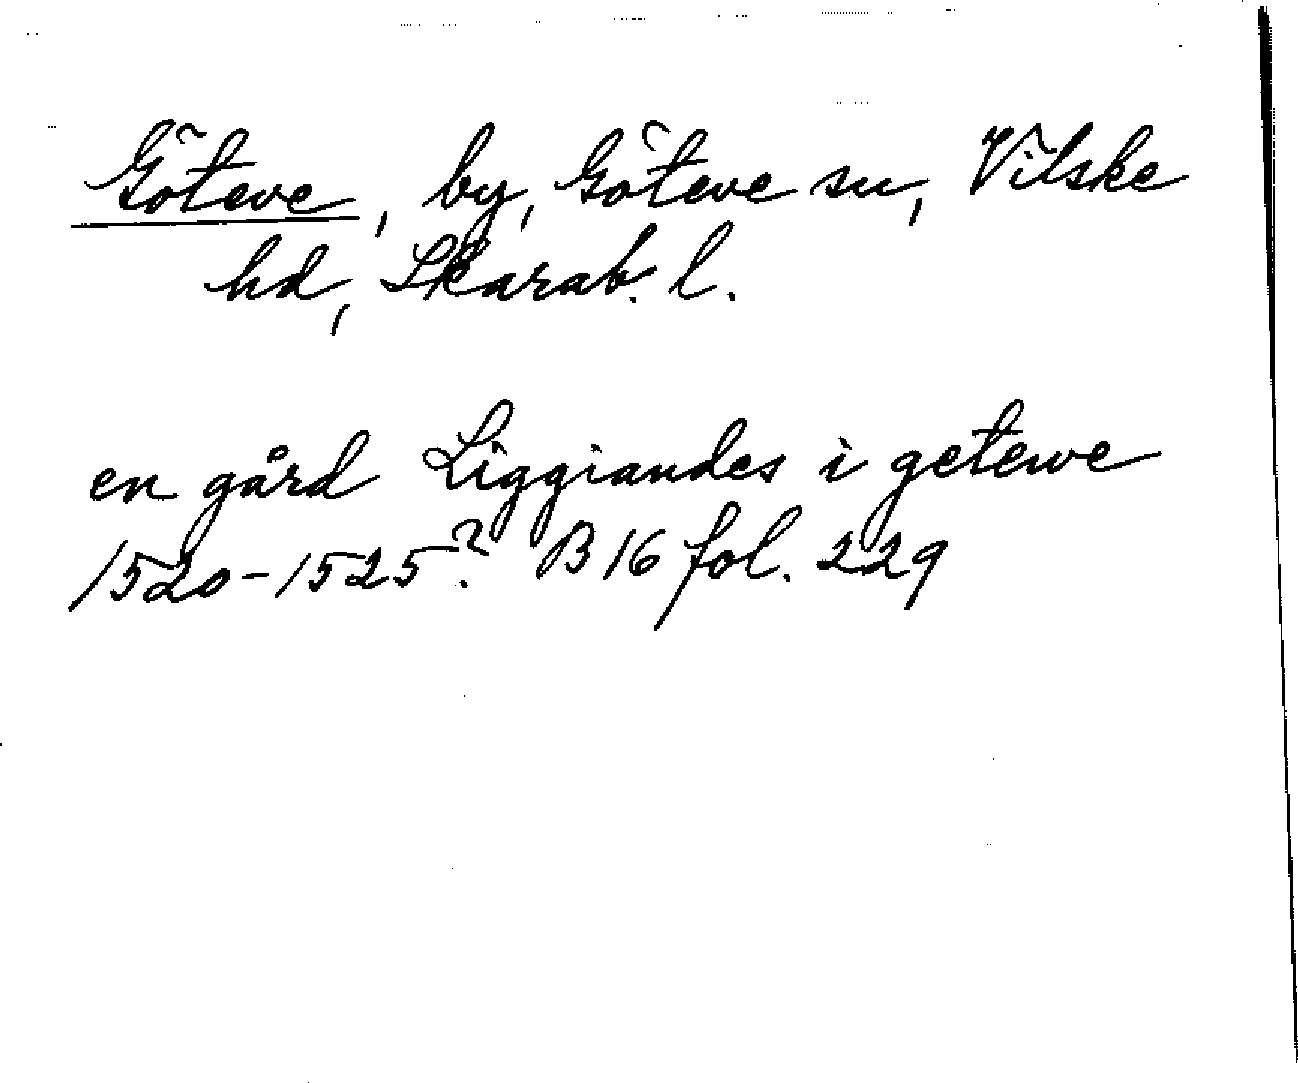 Göteve, by, Göteve sn, Vilske
hd, Skarab. l.
en gård Liggiandes i getewe
1520-1525? B 16 fol. 229